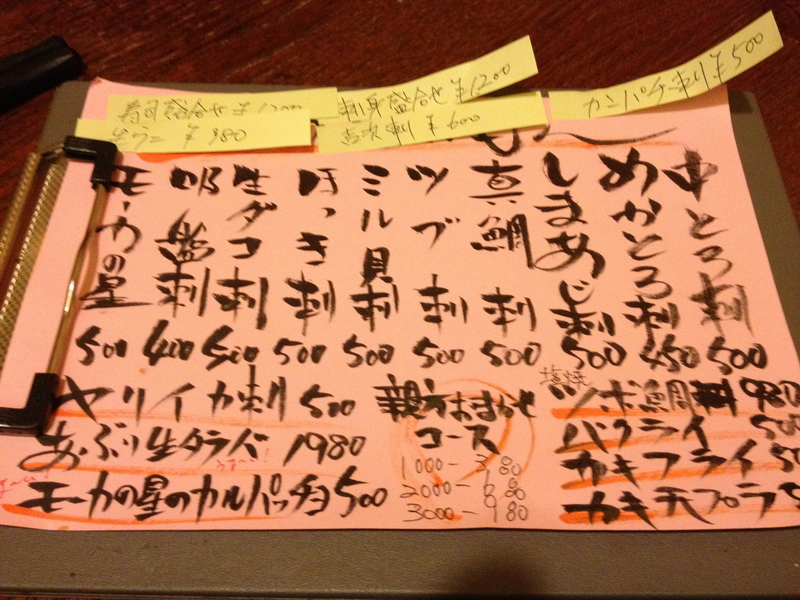 寿司盛合せ ¥1200
生ウニ ¥980
刺身盛合せ ¥1200
赤次刺 ¥600
カンパチ刺 ¥500
中とろ刺 500
めかとろ刺 450
しまあじ刺 500
真鯛刺 500
ツブ刺 500
ミル貝刺 500
ほっき刺 500
生ダコ刺 500
吸盤刺 400
モーカの星 500
ヤリイカ刺 500
あぶり生タラバ 1980
モーカの星のカルパッチョ 500
親方おまかせ
コース
1000-
2000-
3000-
塩焼
ツボ鯛 980
バクライ
カキフライ
カキ天プラ